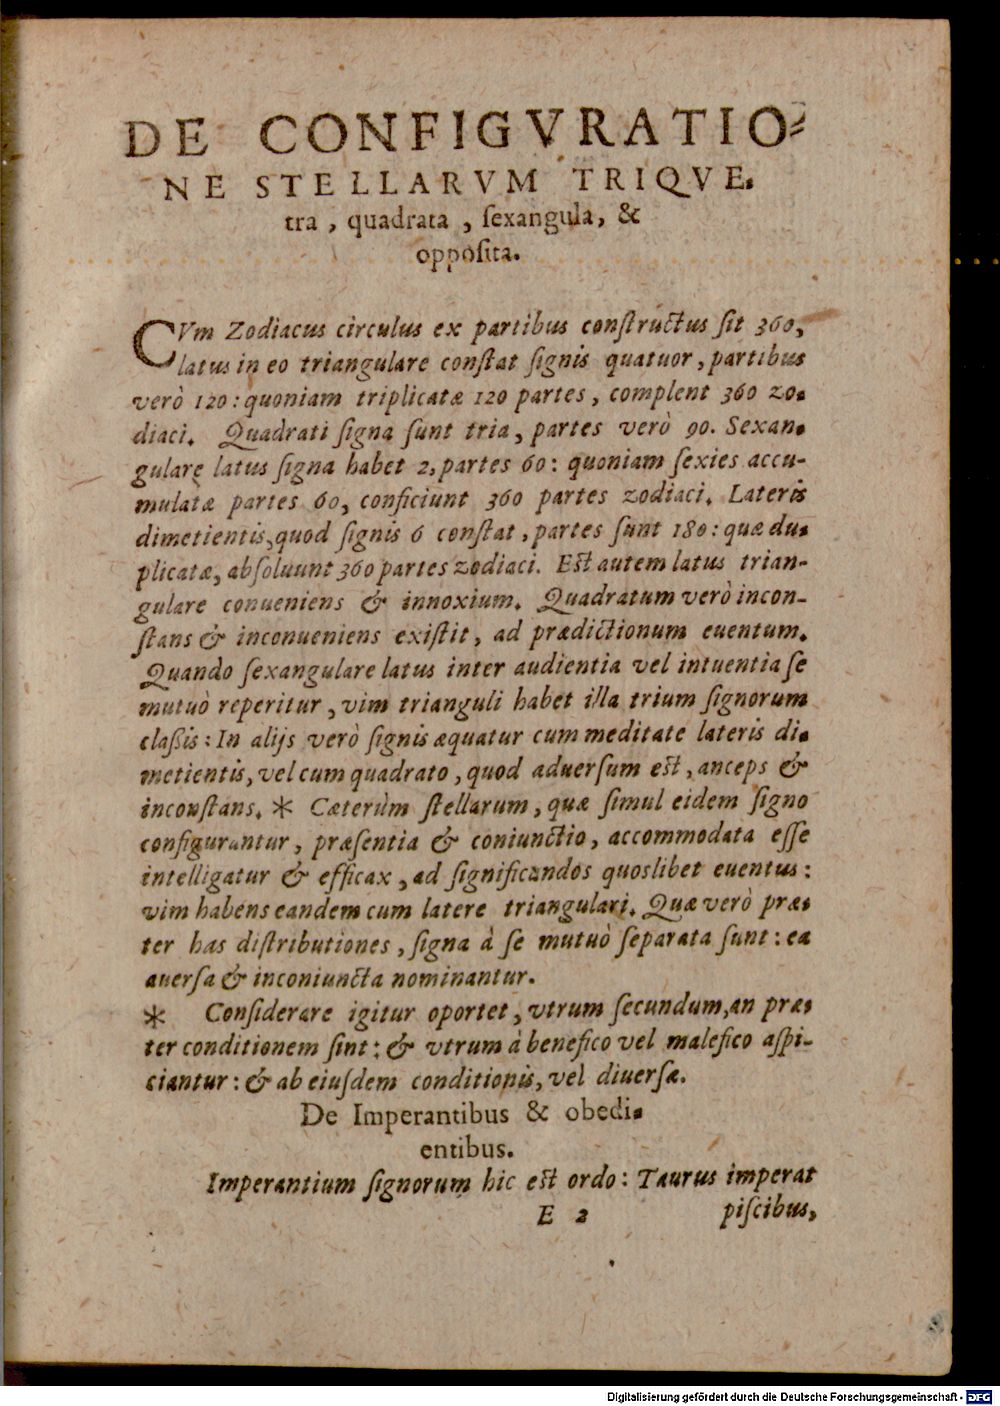 DE CONFIGVRATIO-
NE STELLARVM TRIQVE-
tra, quadrata, ſexangula, &
oppoſita.
CVm Zodiacus circulus ex partibus conſtructus ſit 360,
latus in eo triangulare conſtat ſignis quatuor, partibus
verò 120: quoniam triplicatæ 120 partes, complent 360 zo-
diaci. Quadrati ſigna ſunt tria, partes verò 90. Sexan-
gulare latus ſigna habet 2, partes 60: quoniam ſexies accu-
mulatæ partes 60, conficiunt 360 partes zodiaci. Lateris
dimetientis, quod ſignis 6 conſtat, partes ſunt 180: quæ du-
plicatæ, abſoluunt 360 partes zodiaci. Est autem latus trian-
gulare conueniens & innoxium. Quadratum verò incon-
ſtans & inconueniens exiſtit, ad prædictionum euentum.
Quando ſexangulare latus inter audientia vel intuentia ſe
mutuò reperitur, vim trianguli habet illa trium ſignorum
claßis: In alijs verò ſignis æquatur cum meditate lateris di-
metientis, vel cum quadrato, quod aduerſum est, anceps &
inconſtans. * Cæterùm ſtellarum, quæ ſimul eidem ſigno
configurantur, præſentia & coniunctio, accommodata eſſe
intelligatur & efficax, ad ſignificandos quoslibet euentus:
vim habens eandem cum latere triangulari. Quæ verò præ-
ter has diſtributiones, ſigna à ſe mutuò ſeparata ſunt: ea
auerſa & inconiuncta nominantur.
* Conſiderare igitur oportet, vtrum ſecundum, an præ-
ter conditionem ſint: & vtrum à benefico vel malefico aſpi-
ciantur: & ab eiuſdem conditionis, vel diuerſæ.
De Imperantibus & obedi-
entibus.
Imperantium ſignorum hic est ordo: Taurus imperat
E 2 piſcibus,
Digitalisierung gefördert durch die Deutsche Forschungsgemeinschaft - DFG